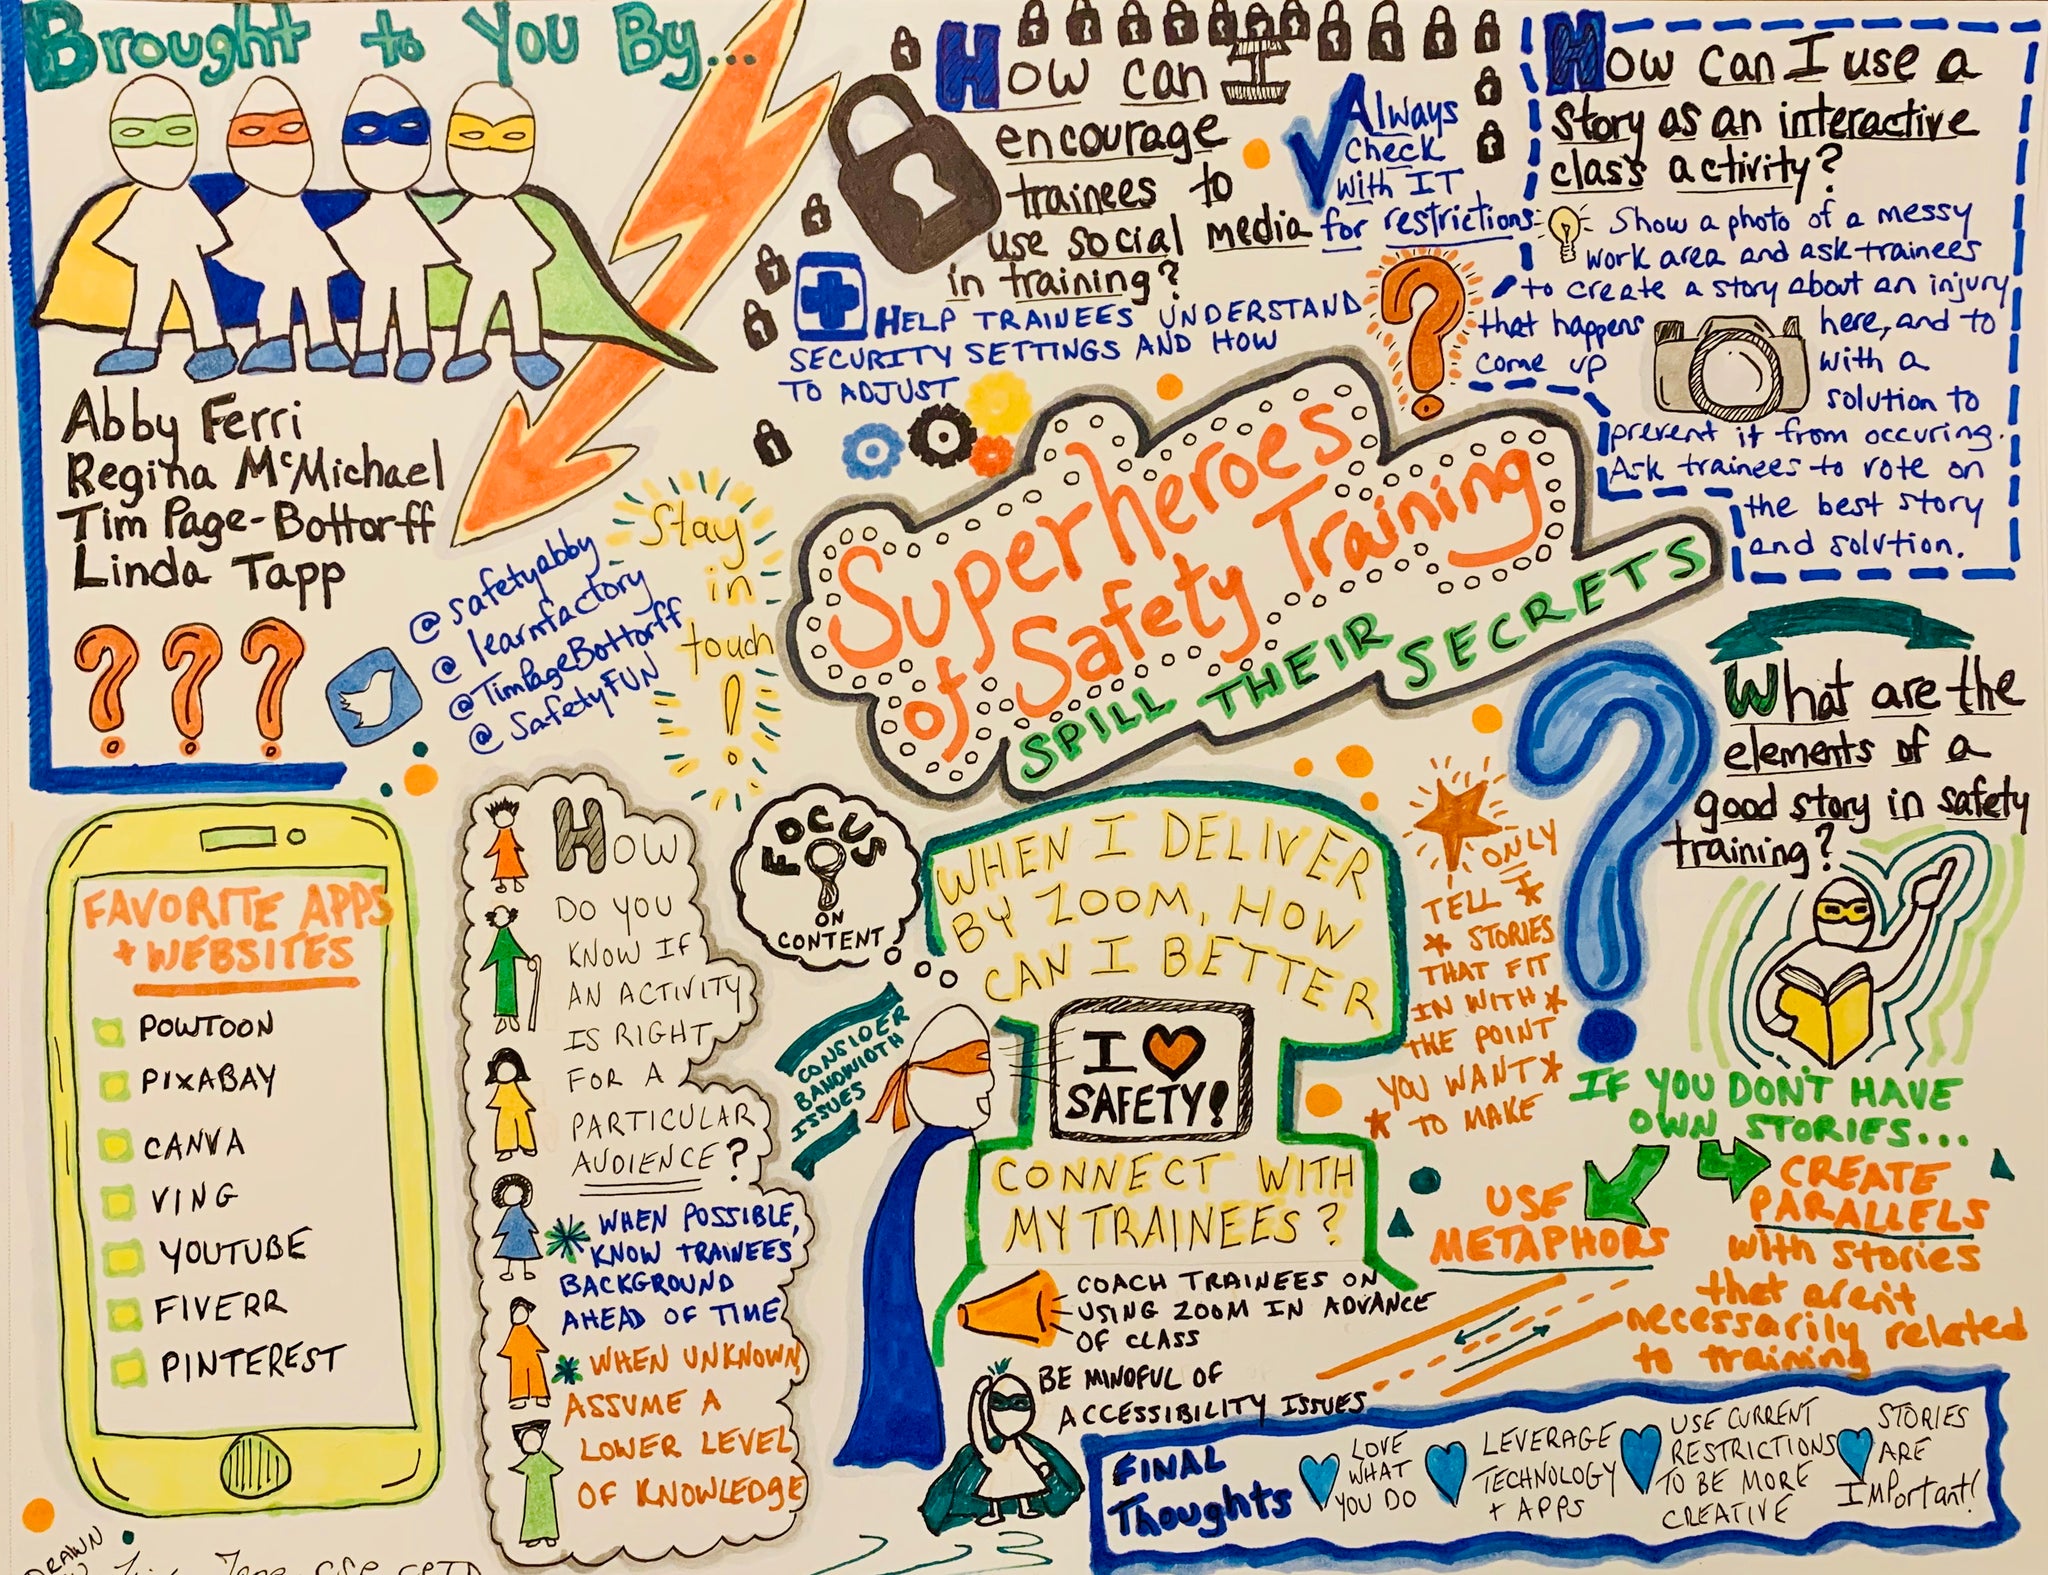 Brought to You By...
Abby Ferri
Regina McMichael
Tim Page-Bottorff
Linda Tapp
@safetyabby
@learnfactory
@TimPageBottorff
@SafetyFUN
Stay
in
touch!
How can I
encourage
trainees to
use social media
in training?
Always
check
with IT
for restrictions
HELP TRAINEES UNDERSTAND
SECURITY SETTINGS AND HOW
TO ADJUST
How can I use a
story as an interactive
class activity?
Show a photo of a messy
work area and ask trainees
to create a story about an injury
that happens here, and to
come up with a
solution to
prevent it from occuring.
Ask trainees to vote on
the best story
and solution.
Superheroes
of Safety Training
SPILL THEIR SECRETS
FAVORITE APPS
+ WEBSITES
POWTOON
PIXABAY
CANVA
VING
YOUTUBE
FIVERR
PINTEREST
HOW
DO YOU
KNOW IF
AN ACTIVITY
IS RIGHT
FOR A
PARTICULAR
AUDIENCE?
WHEN POSSIBLE,
KNOW TRAINEES
BACKGROUND
AHEAD OF TIME
WHEN UNKNOWN,
ASSUME A
LOWER LEVEL
OF KNOWLEDGE
FOCUS
ON
CONTENT
CONSIDER
BANDWIDTH
ISSUES
WHEN I DELIVER
BY ZOOM, HOW
CAN I BETTER
I
SAFETY!
CONNECT WITH
MY TRAINEES?
COACH TRAINEES ON
USING ZOOM IN ADVANCE
OF CLASS
BE MINDFUL OF
ACCESSIBILITY ISSUES
ONLY
TELL
STORIES
THAT FIT
IN WITH
THE POINT
YOU WANT
TO MAKE
What are the
elements of a
good story in safety
training?
IF YOU DON'T HAVE
OWN STORIES...
USE
METAPHORS
CREATE
PARALLELS
with stories
that aren't
necessarily related
to training
FINAL
Thoughts
LOVE
WHAT
YOU DO
LEVERAGE
TECHNOLOGY
+ APPS
USE CURRENT
RESTRICTIONS
TO BE MORE
CREATIVE
STORIES
ARE
IMPortant!
DRAWN